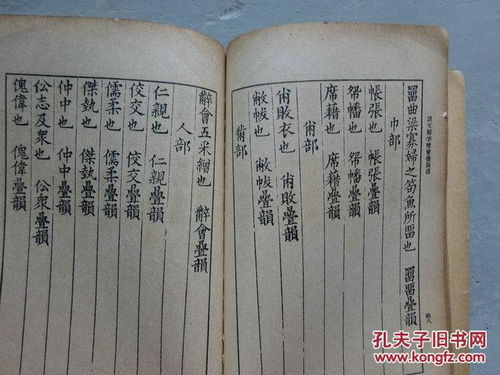 罶曲梁寡婦之笱魚所罶也 罶罶疊韻
巾部
帳張也 帳張疊韻
帑幡也 帑幡疊韻
席籍也 席籍疊韻
㡀部
㡀敗衣也 㡀敗疊韻
敝帗也 敝帗疊韻
黹部
四八
五采繒也 會疊韻
人部
仁親也 仁親疊韻
佼交也 佼交疊韻
儒柔也 儒柔疊韻
傑埶也 傑埶疊韻
仲中也 仲中疊韻
伀志及衆也 伀衆疊韻
傀偉也 傀偉疊韻
孔夫子旧书网
www.kongfz.com